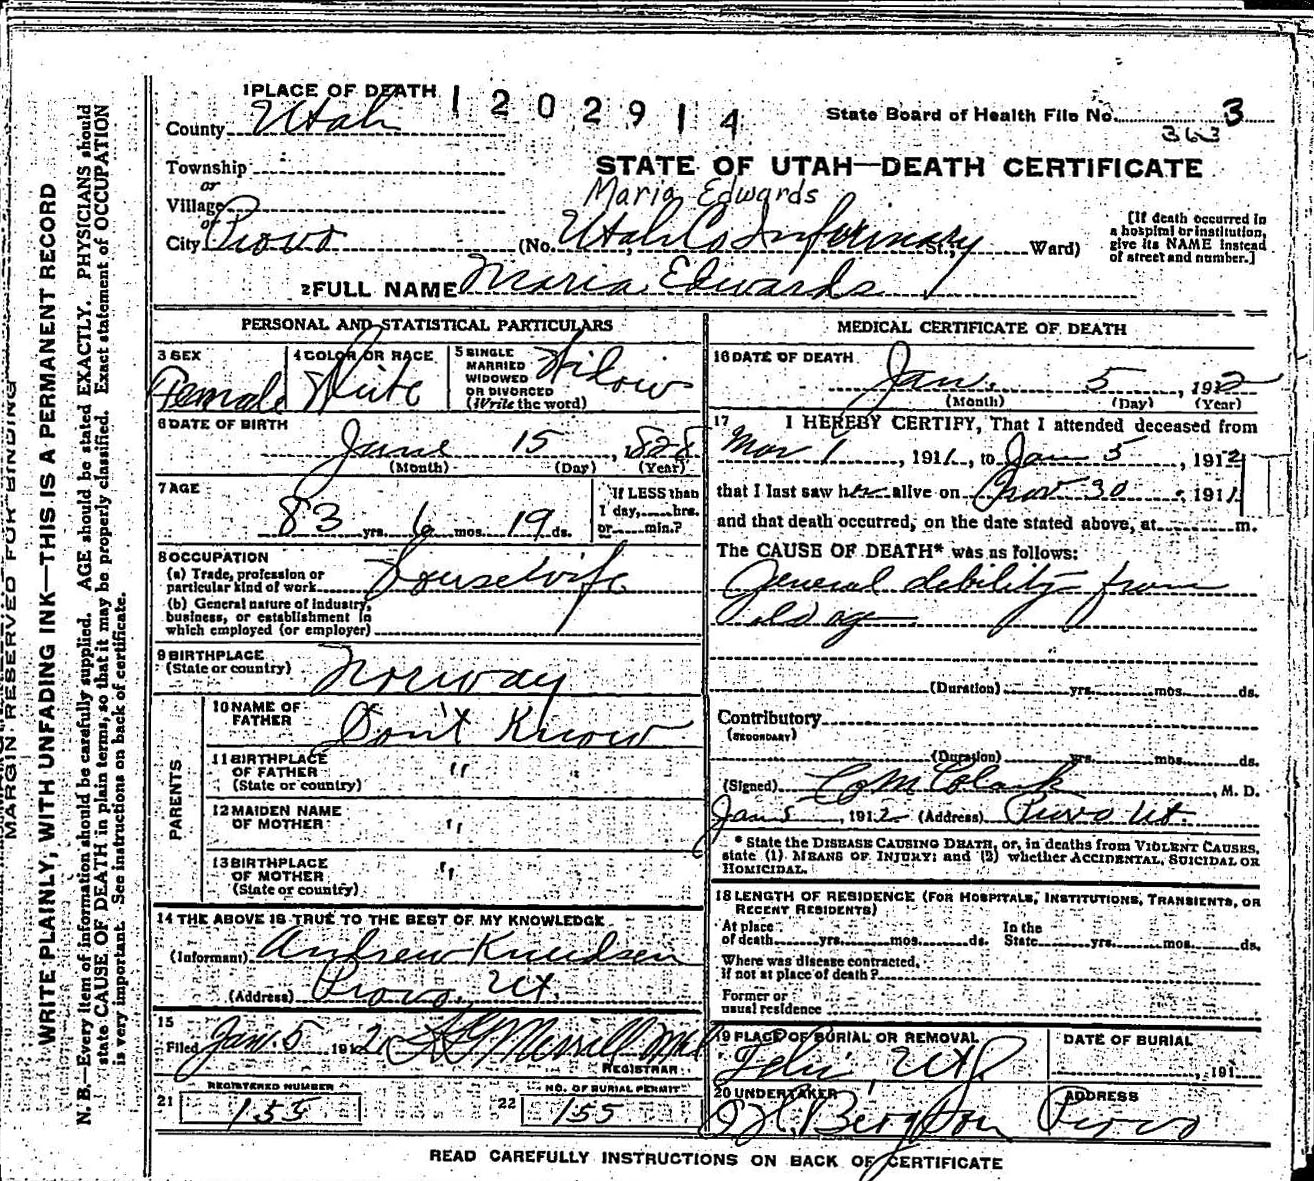 1 PLACE OF DEATH 1202914
State Board of Health File No. 3
363
County Utah
STATE OF UTAH—DEATH CERTIFICATE
Township
or
Maria Edwards
Village
or
City Provo (No. Utah Co Infirmary St., Ward)
[If death occurred in
a hospital or institution,
give its NAME instead
of street and number.]
2 FULL NAME Maria Edwards
PERSONAL AND STATISTICAL PARTICULARS
3 SEX
Female
4 COLOR OR RACE
White
5 SINGLE
MARRIED
WIDOWED
OR DIVORCED
(Write the word)
Widow
6 DATE OF BIRTH
June 15, 1828
(Month) (Day) (Year)
7 AGE
83 yrs. 6 mos. 19 ds.
If LESS than
1 day, hrs.
or min.?
8 OCCUPATION
(a) Trade, profession or
particular kind of work Housewife
(b) General nature of industry,
business, or establishment in
which employed (or employer)
9 BIRTHPLACE
(State or country) Norway
PARENTS
10 NAME OF
FATHER Don't Know
11 BIRTHPLACE
OF FATHER " "
(State or country)
12 MAIDEN NAME
OF MOTHER "
13 BIRTHPLACE
OF MOTHER "
(State or country)
14 THE ABOVE IS TRUE TO THE BEST OF MY KNOWLEDGE
(Informant) Andrew Knudsen
(Address) Provo, Ut.
15
Filed Jan. 5 1912 Merrill
REGISTRAR
REGISTERED NUMBER
21 155
NO. OF BURIAL PERMIT
22 155
MEDICAL CERTIFICATE OF DEATH
16 DATE OF DEATH
Jan. 5, 1912
(Month) (Day) (Year)
17 I HEREBY CERTIFY, That I attended deceased from
Mar 1, 1911, to Jan 5, 1912
that I last saw her alive on Nov 30, 1911
and that death occurred, on the date stated above, at m.
The CAUSE OF DEATH* was as follows:
General debility from
old age
(Duration) yrs. mos. ds.
Contributory
(SECONDARY)
(Duration) yrs. mos. ds.
(Signed) M. D.
Jan 5, 1912 (Address) Provo Ut.
* State the DISEASE CAUSING DEATH, or, in deaths from VIOLENT CAUSES,
state (1) MEANS OF INJURY; and (2) whether ACCIDENTAL, SUICIDAL OR
HOMICIDAL.
18 LENGTH OF RESIDENCE (FOR HOSPITALS, INSTITUTIONS, TRANSIENTS, OR
RECENT RESIDENTS)
At place
of death yrs. mos. ds.
In the
State yrs. mos. ds.
Where was disease contracted,
if not at place of death?
Former or
usual residence
19 PLACE OF BURIAL OR REMOVAL
Lehi, Ut.
DATE OF BURIAL
, 191
20 UNDERTAKER
ADDRESS
Provo
READ CAREFULLY INSTRUCTIONS ON BACK OF CERTIFICATE
MARGIN RESERVED FOR BINDING
WRITE PLAINLY, WITH UNFADING INK—THIS IS A PERMANENT RECORD
N. B.—Every item of information should be carefully supplied. AGE should be stated EXACTLY. PHYSICIANS should
state CAUSE OF DEATH in plain terms, so that it may be properly classified. Exact statement of OCCUPATION
is very important. See instructions on back of certificate.